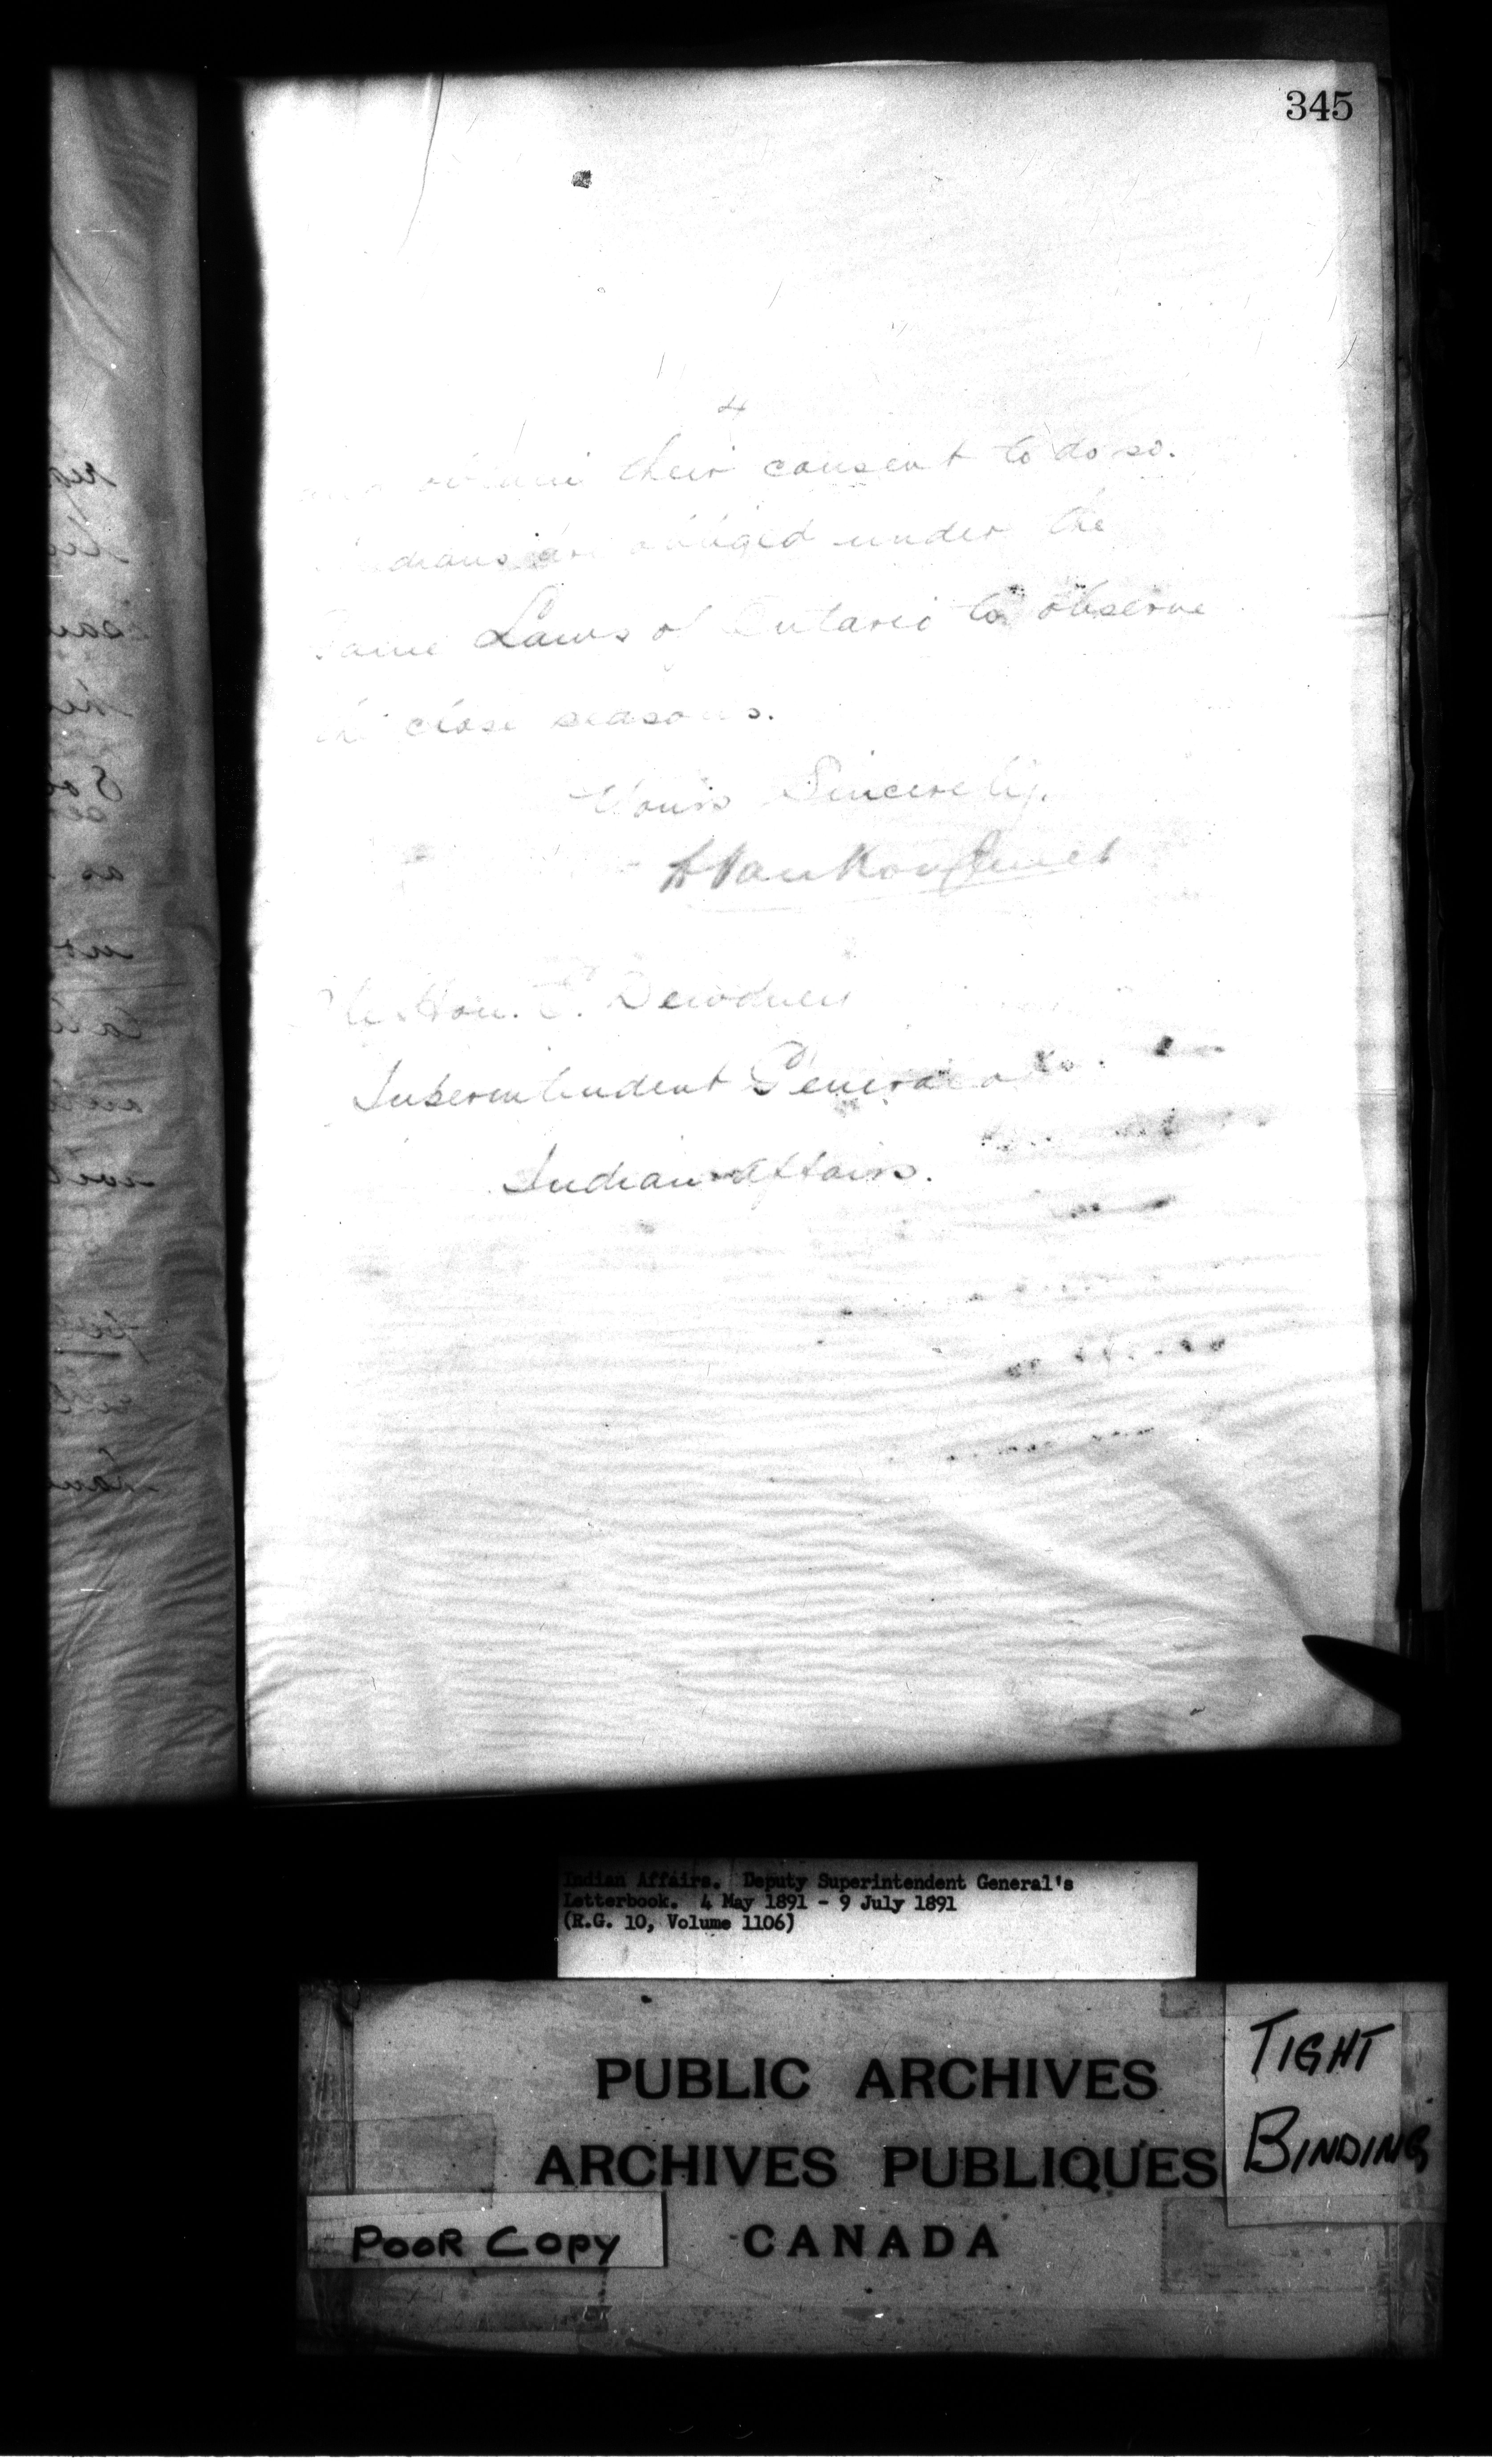 345
4
and obtain their consent to do so.
Indians are obliged under the
Game Laws of Ontario to observe
the close seasons.
Yours Sincerely,
L Vankoughnet
The Hon. E. Dewdney
Superintendent General of
Indian Affairs.
Indian Affairs. Deputy Superintendent General's
Letterbook. 4 May 1891 - 9 July 1891
(R.G. 10, Volume 1106)
PUBLIC ARCHIVES
ARCHIVES PUBLIQUES
CANADA
TIGHT
BINDING
POOR COPY